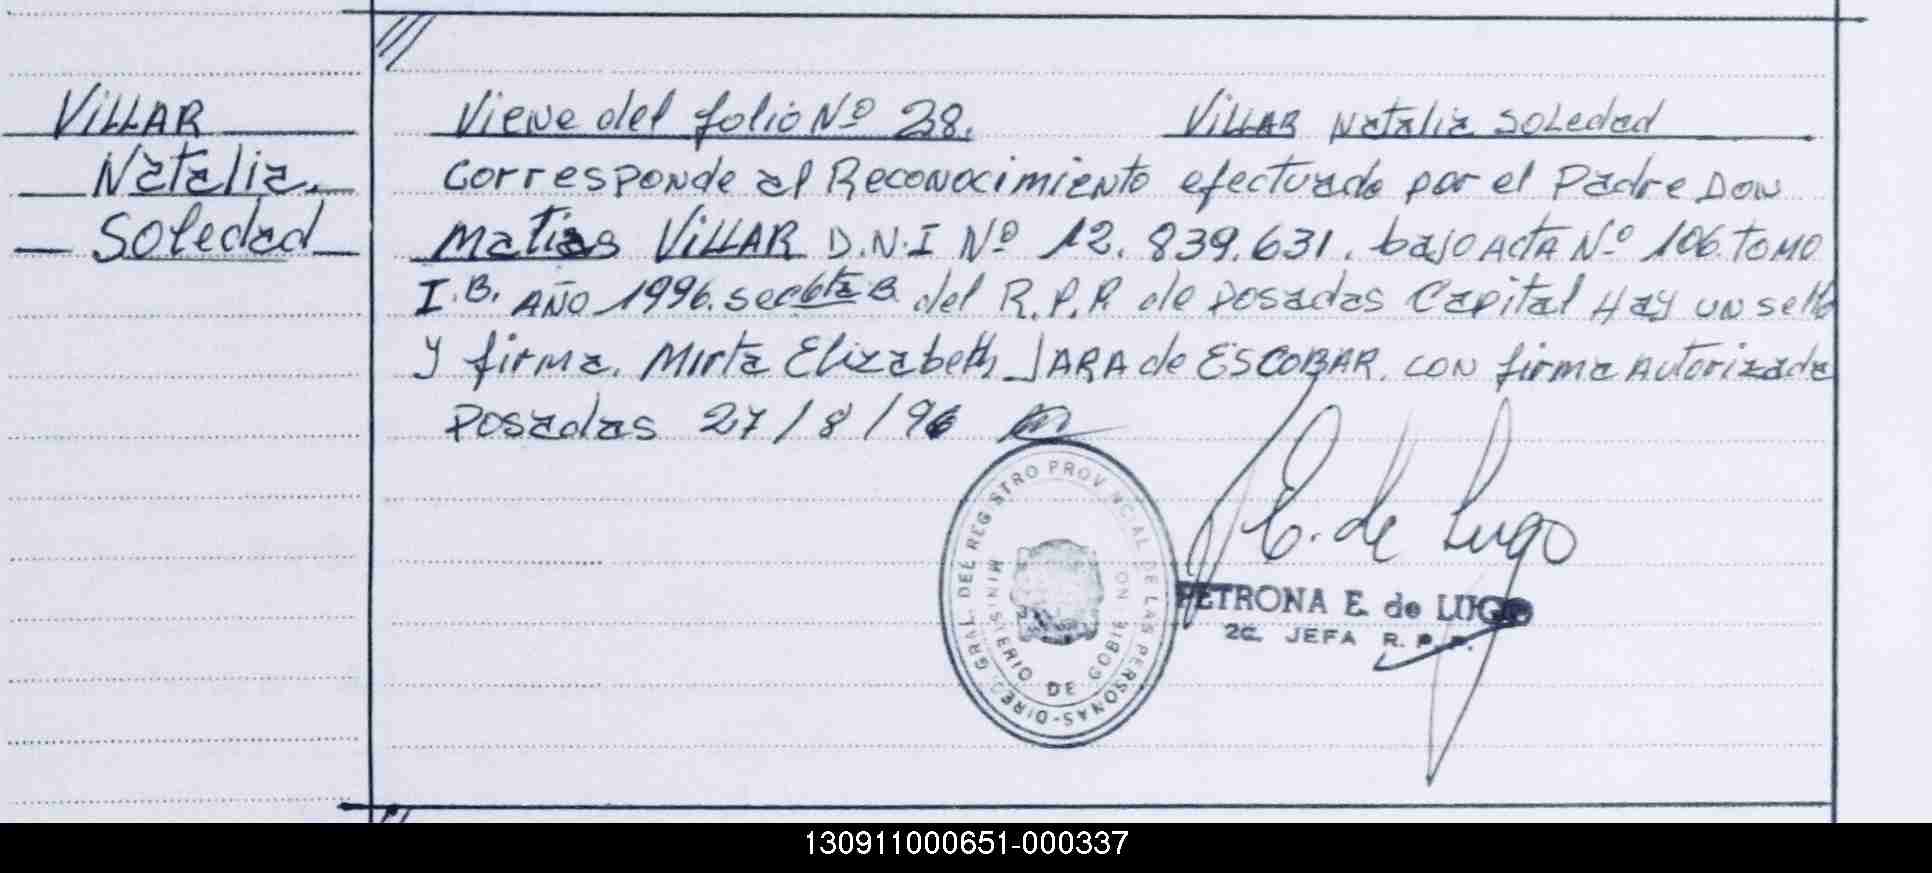 VILLAR
Natalia
Soledad
Viene del folio Nº 28. VILLAR Natalia Soledad
Corresponde al Reconocimiento efectuado por el Padre Don
Matias VILLAR D.N.I Nº 12.839.631. bajo Acta Nº 106. Tomo
I.B. AÑO 1996. del R.P.P. de Posadas Capital Hay un sello
y firma. Mirta Elizabeth JARA de ESCOBAR. con firma Autorizada
Posadas 27/8/96
E. de Lugo
DIREC. GRAL. DEL REGISTRO PROVINCIAL DE LAS PERSONAS-
MINISTERIO DE GOBIERNO
PETRONA E. de LUGO
JEFA R. P. P.
130911000651-000337